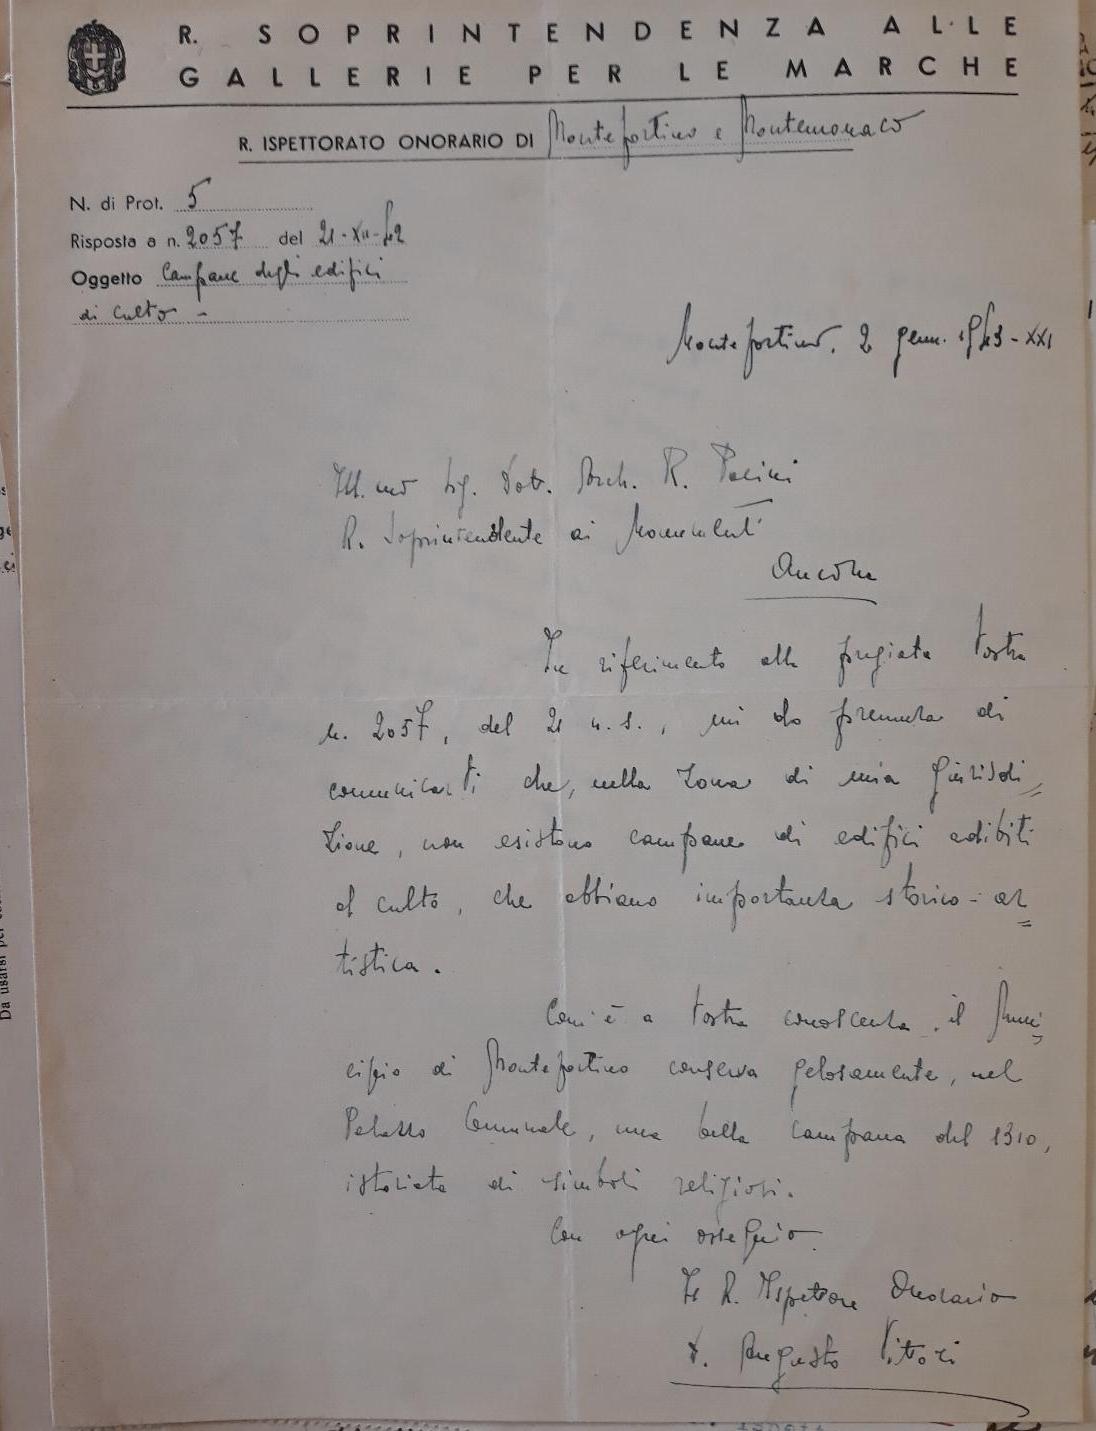 R. SOPRINTENDENZA ALLE
GALLERIE PER LE MARCHE
R. ISPETTORATO ONORARIO DI Montefortino e Montemonaco
N. di Prot. 5
Risposta a n. 2057 del 21-XII-42
Oggetto Campane degli edifici
di culto -
Montefortino, 2 genn. 1943-XXI
Ill.mo Sig. Dott. Arch. R. Pacini
R. Soprintendente ai Monumenti
Ancona
In riferimento alla pregiata Vostra
n. 2057, del 21 u.s., mi do premura di
comunicarVi che, nella zona di mia giurisdi=
zione, non esistono campane di edifici adibiti
al culto, che abbiano importanza storico-ar=
tistica.
Com'è a Vostra conoscenza, il Muni=
cipio di Montefortino conserva gelosamente, nel
Palazzo Comunale, una bella campana del 1310,
istoriata di simboli religiosi.
Con ogni ossequio.
Il R. Ispettore Onorario
D. Augusto Vittori
Da usarsi per